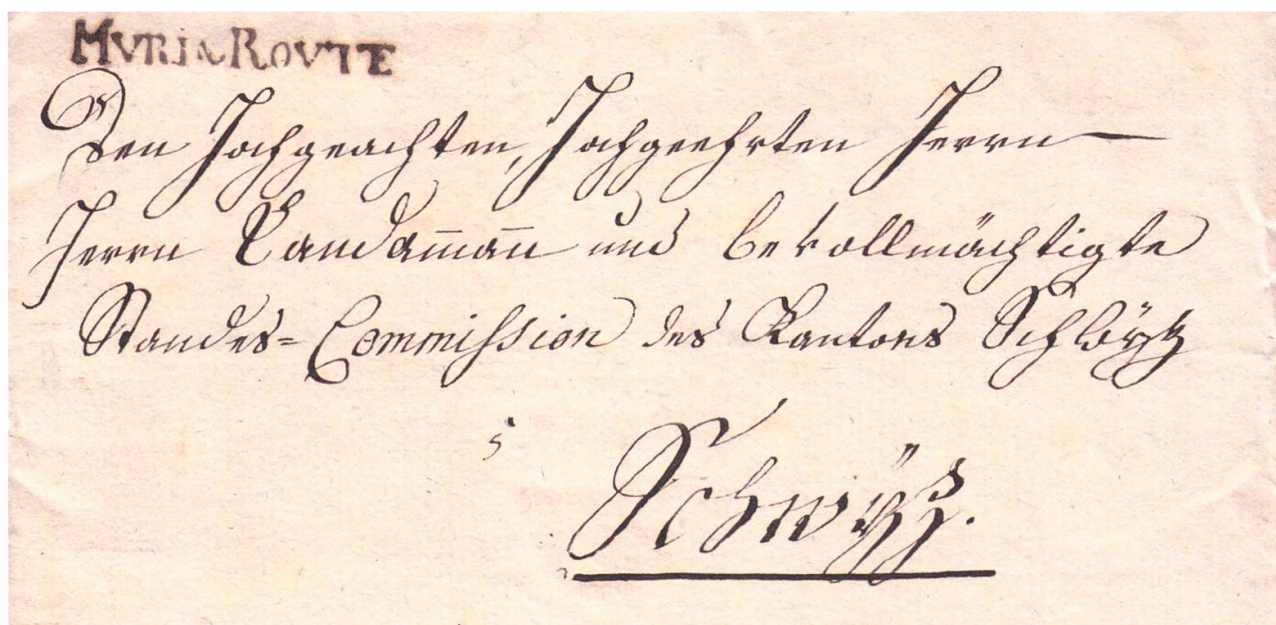 MVRI & ROVTE
Den Hochgeachten, Hochgeehrten Herrn
Herrn Landam̅an̅ und bevollmächtigte
Standes=Commission des Kantons Schwÿtz
5
Schwÿtz.